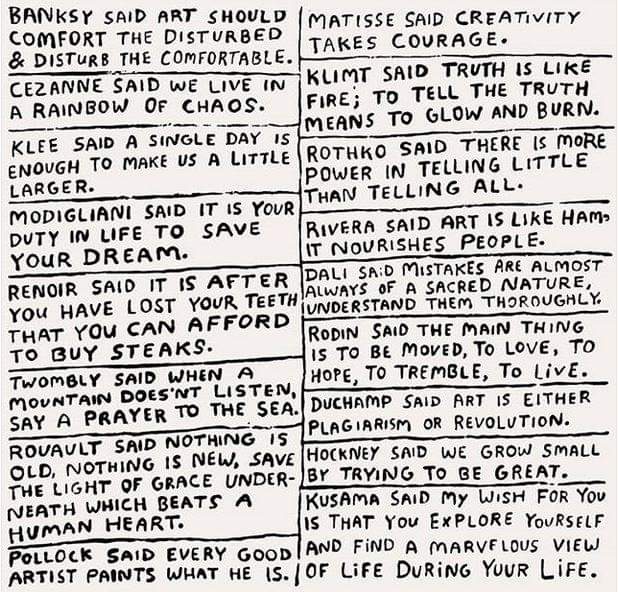 BANKSY SAID ART SHOULD
COMFORT THE DISTURBED
& DISTURB THE COMFORTABLE.
CEZANNE SAID WE LIVE IN
A RAINBOW OF CHAOS.
KLEE SAID A SINGLE DAY IS
ENOUGH TO MAKE US A LITTLE
LARGER.
MODIGLIANI SAID IT IS YOUR
DUTY IN LIFE TO SAVE
YOUR DREAM.
RENOIR SAID IT IS AFTER
YOU HAVE LOST YOUR TEETH
THAT YOU CAN AFFORD
TO BUY STEAKS.
TWOMBLY SAID WHEN A
MOUNTAIN DOES'NT LISTEN,
SAY A PRAYER TO THE SEA.
ROUAULT SAID NOTHING IS
OLD, NOTHING IS NEW, SAVE
THE LIGHT OF GRACE UNDER-
NEATH WHICH BEATS A
HUMAN HEART.
POLLOCK SAID EVERY GOOD
ARTIST PAINTS WHAT HE IS.
MATISSE SAID CREATIVITY
TAKES COURAGE.
KLIMT SAID TRUTH IS LIKE
FIRE; TO TELL THE TRUTH
MEANS TO GLOW AND BURN.
ROTHKO SAID THERE IS MORE
POWER IN TELLING LITTLE
THAN TELLING ALL.
RIVERA SAID ART IS LIKE HAM,
IT NOURISHES PEOPLE.
DALI SAID MISTAKES ARE ALMOST
ALWAYS OF A SACRED NATURE,
UNDERSTAND THEM THOROUGHLY.
RODIN SAID THE MAIN THING
IS TO BE MOVED, TO LOVE, TO
HOPE, TO TREMBLE, TO LIVE.
DUCHAMP SAID ART IS EITHER
PLAGIARISM OR REVOLUTION.
HOCKNEY SAID WE GROW SMALL
BY TRYING TO BE GREAT.
KUSAMA SAID MY WISH FOR YOU
IS THAT YOU EXPLORE YOURSELF
AND FIND A MARVELOUS VIEW
OF LIFE DURING YOUR LIFE.